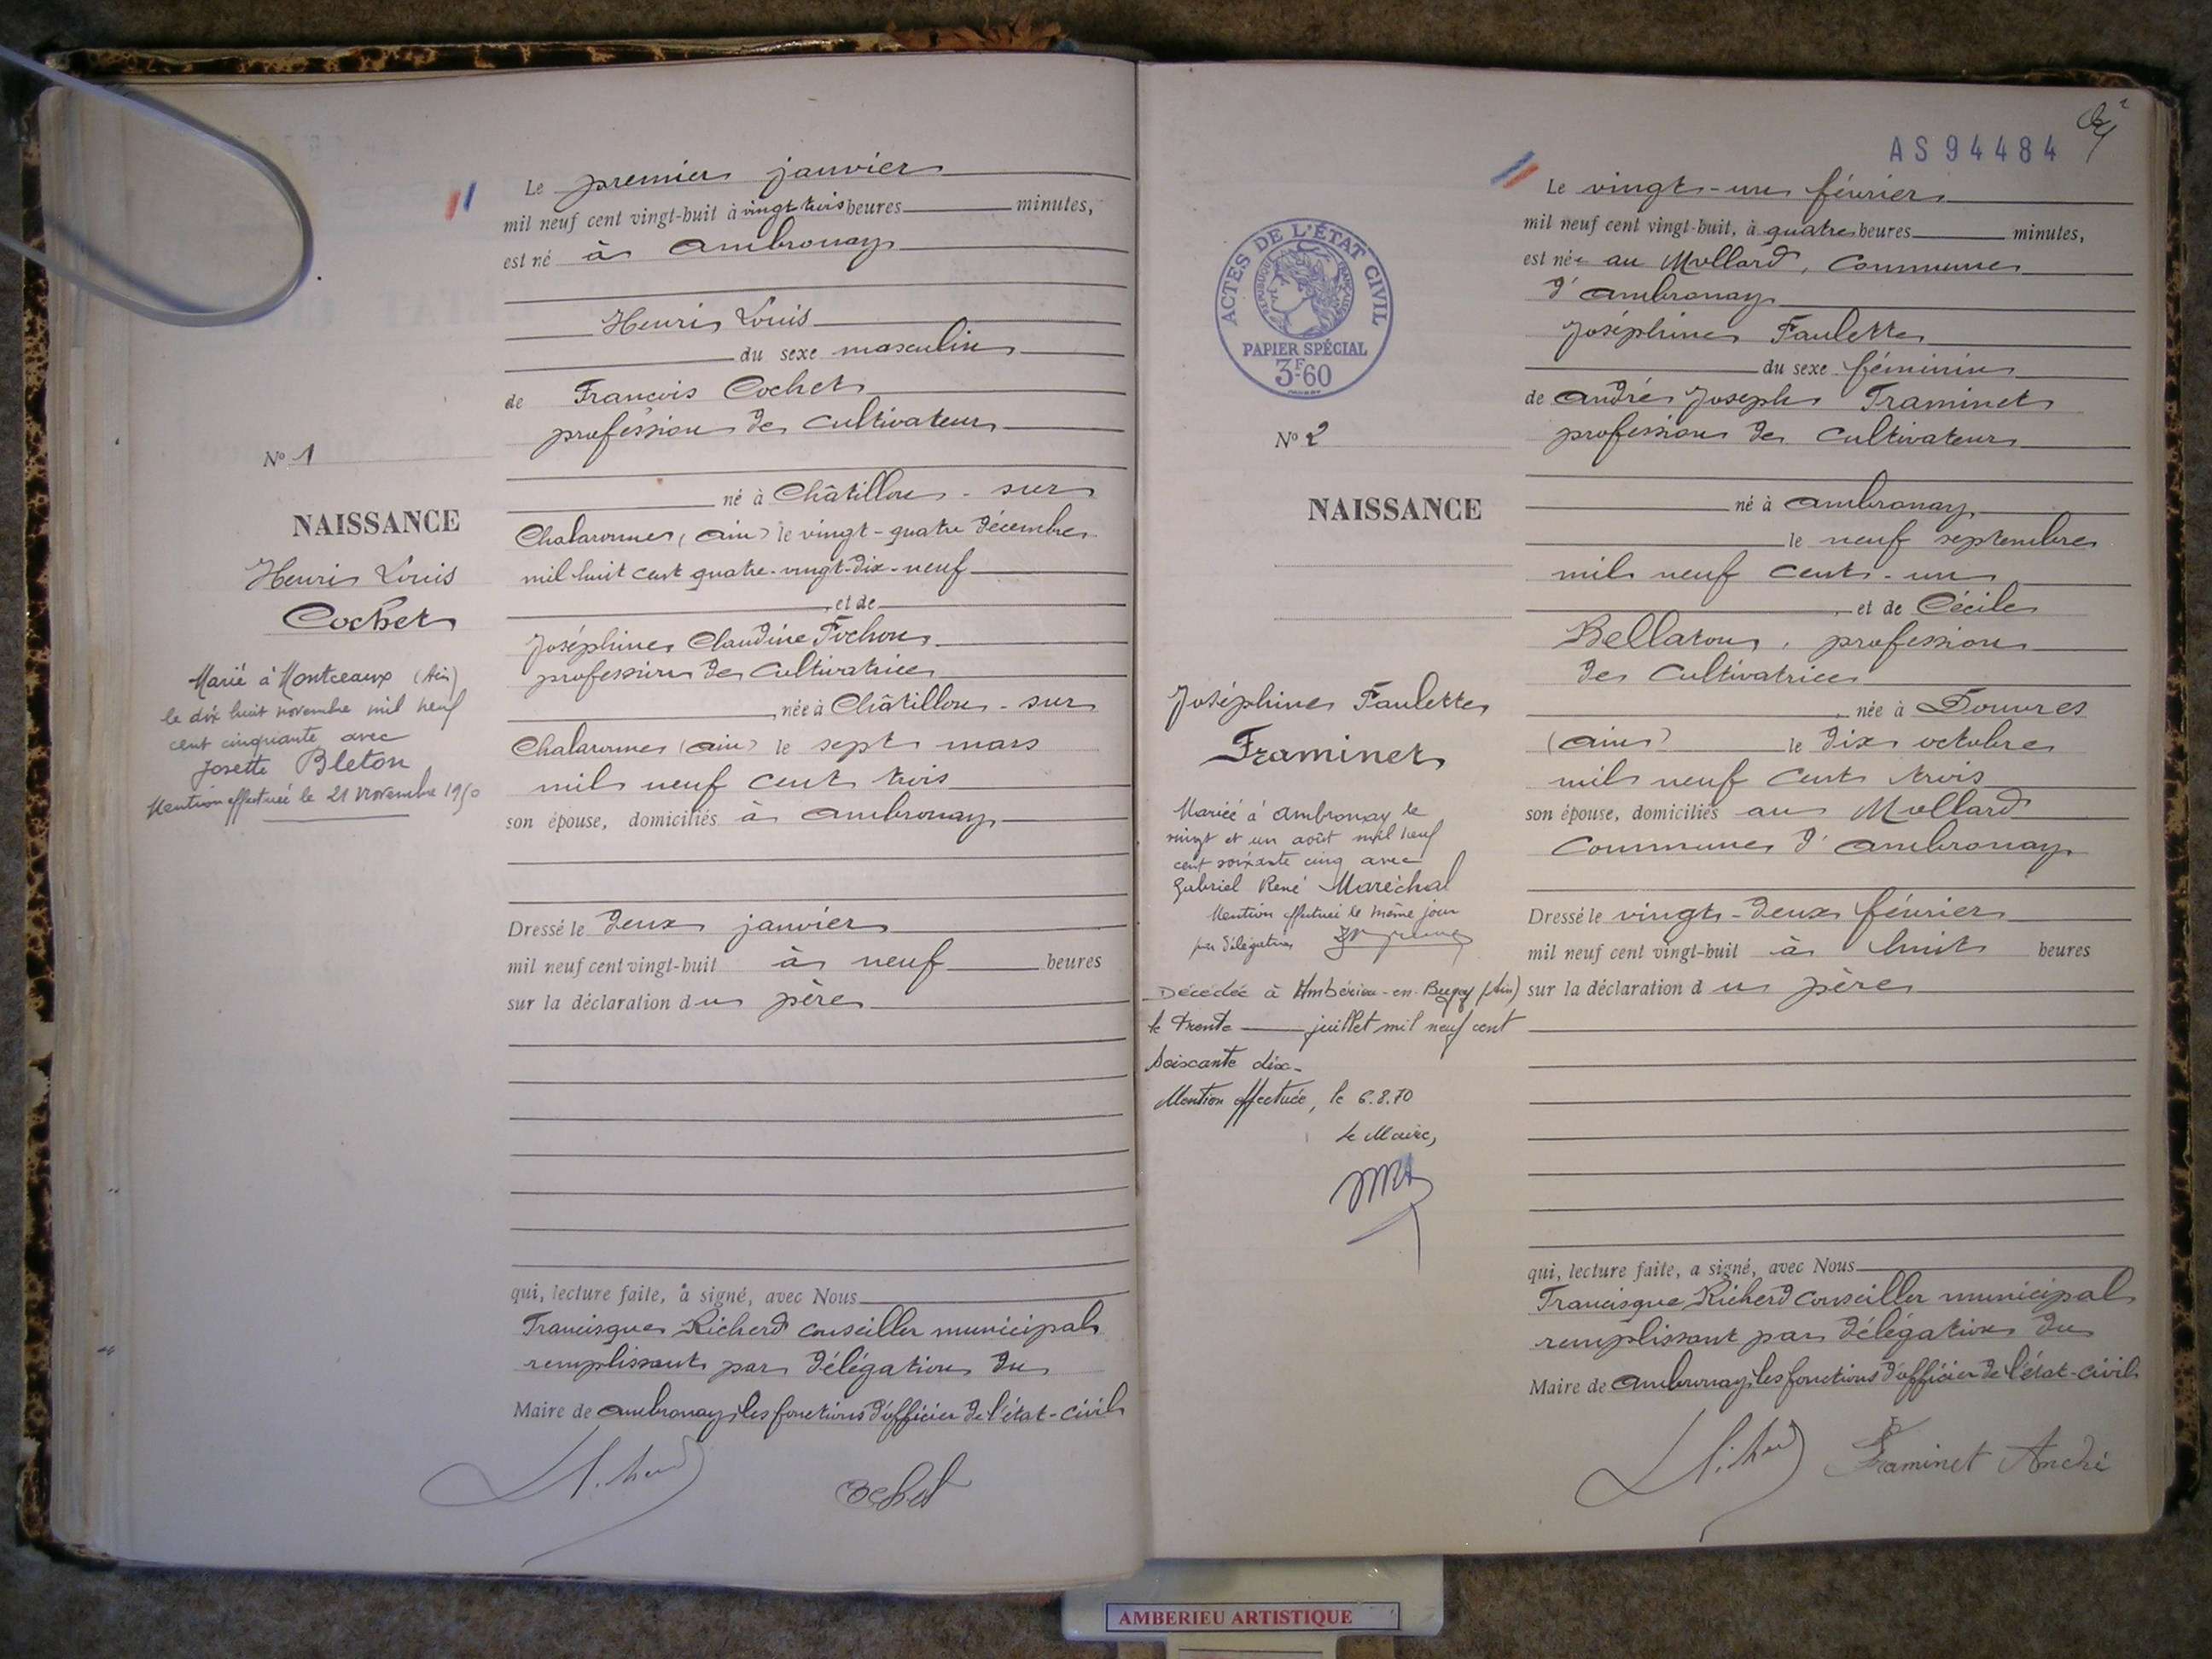 Le premier janvier
mil neuf cent vingt-huit à vingt trois heures minutes,
est né à Ambronay
Henri Louis
du sexe masculin
de François Cochet
profession de cultivateur
né à Châtillon-sur
Chalaronne (Ain) le vingt-quatre décembre
mil huit cent quatre-vingt-dix-neuf
, et de
Joséphine Claudine Fochon
profession de cultivatrice
, née à Châtillon-sur
Chalaronne (Ain) le sept mars
mil neuf cent trois
son épouse, domiciliés à Ambronay
Dressé le deux janvier
mil neuf cent vingt-huit à neuf heures
sur la déclaration du père
qui, lecture faite, a signé, avec Nous
Francisque Richerd conseiller municipal
remplissant par délégation du
Maire de Ambronay, les fonctions d'officier de l'état-civil
No 1
NAISSANCE
Henri Louis
Cochet
Marié à Montceaux (Ain)
le dix huit novembre mil neuf
cent cinquante avec
Josette Bleton
Mention effectuée le 21 novembre 1950
AS 94484
Le vingt-un février
mil neuf cent vingt-huit, à quatre heures minutes,
est née au Mollard, commune
d'Ambronay
Joséphine Paulette
du sexe féminin
de André Joseph Framinet
profession de cultivateur
né à Ambronay
le neuf septembre
mil neuf cent-un
, et de Cécile
Bellaton, profession
de cultivatrice
, née à Douvres
(Ain) le dix octobre
mil neuf cent trois
son épouse, domiciliés au Mollard
commune d'Ambronay
Dressé le vingt-deux février
mil neuf cent vingt-huit à huit heures
sur la déclaration du père
qui, lecture faite, a signé, avec Nous
Francisque Richerd conseiller municipal
remplissant par délégation du
Maire de Ambronay, les fonctions d'officier de l'état-civil
Framinet André
ACTES DE L'ÉTAT CIVIL
RÉPUBLIQUE FRANÇAISE
PAPIER SPÉCIAL
3F-60
No 2
NAISSANCE
Joséphine Paulette
Framinet
Mariée à Ambronay le
vingt et un août mil neuf
cent soixante cinq avec
Gabriel René Maréchal
Mention effectuée le même jour
par délégation
Décédée à Ambérieu-en-Bugey (Ain)
le trente juillet mil neuf cent
soixante dix-
Mention effectuée, le 6.8.70
Le Maire,
AMBERIEU ARTISTIQUE